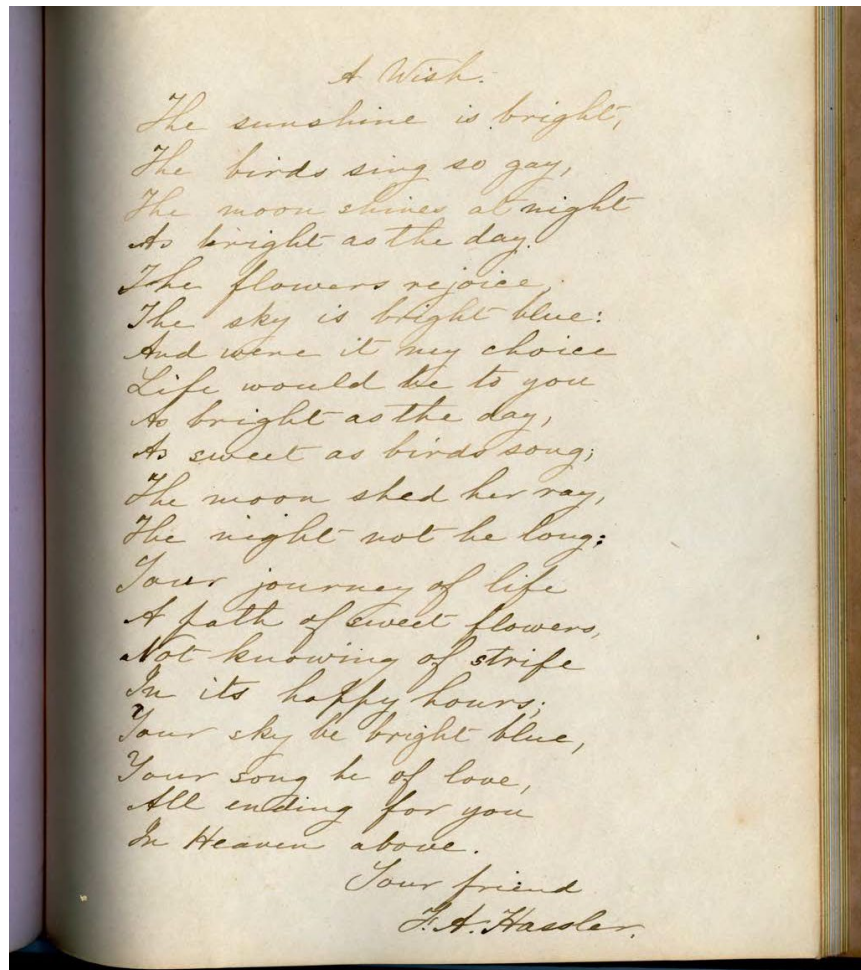 A Wish.
The sunshine is bright,
The birds sing so gay,
The moon shines at night
As bright as the day.
The flowers rejoice,
The sky is bright blue:
And were it my choice
Life would be to you
As bright as the day,
As sweet as birds song;
The moon shed her ray,
The night not be long;
Your journey of life
A path of sweet flowers,
Not knowing of strife
In its happy hours;
Your sky be bright blue,
Your song be of love,
All ending for you
In Heaven above.
Your friend
F. A. Hassler.